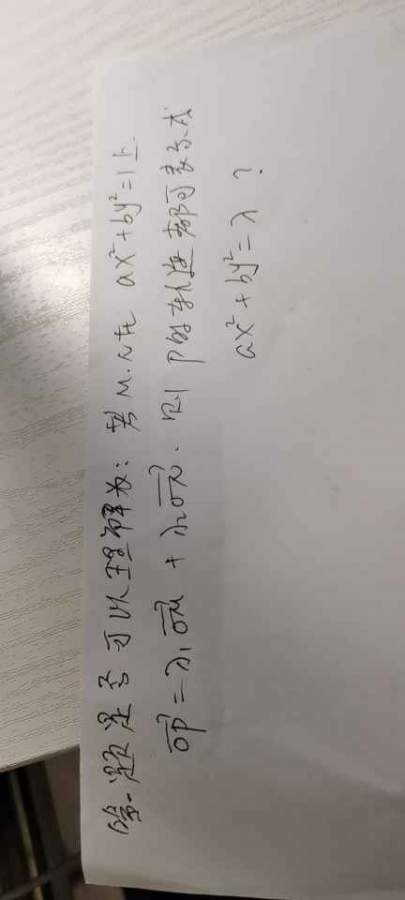 第一题是否可以理解为: 若M.N在 ax²+by²=1上.
OP = λ₁OM + λ₂ON. 则 P的轨迹都可表示成
ax²+by²=λ ?